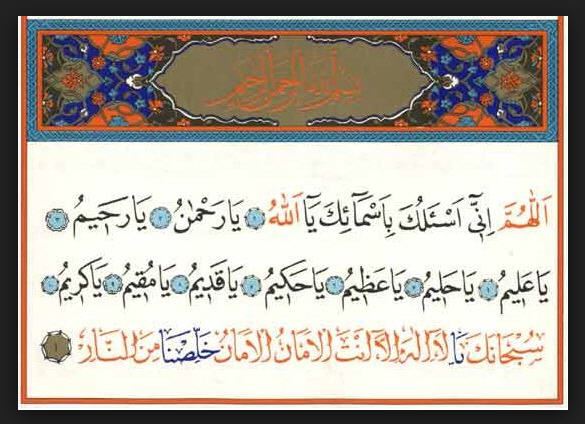 بسم الله الرحمن الرحيم
اَللّٰهُمَّ اِنّٖٓى اَسْئَلُكَ بِاَسْمَٓائِكَ يَٓا اَللّٰهُ يَا رَحْمٰنُ يَا رَحٖيمُ
يَا عَلٖيمُ يَا حَلٖيمُ يَا عَظٖيمُ يَا حَكٖيمُ يَا قَدٖيمُ يَا مُقٖيمُ يَا كَرٖيمُ
سُبْحَانَكَ يَا لَٓا اِلٰهَ اِلَّٓا اَنْتَ الْاَمَانُ الْاَمَانُ خَلِّصْنَا مِنَ النَّارِ ١